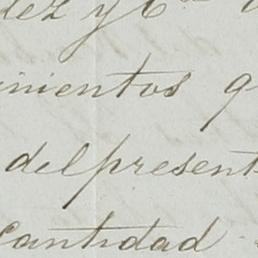 dez y Cª
mientos q
del present
Cantidad